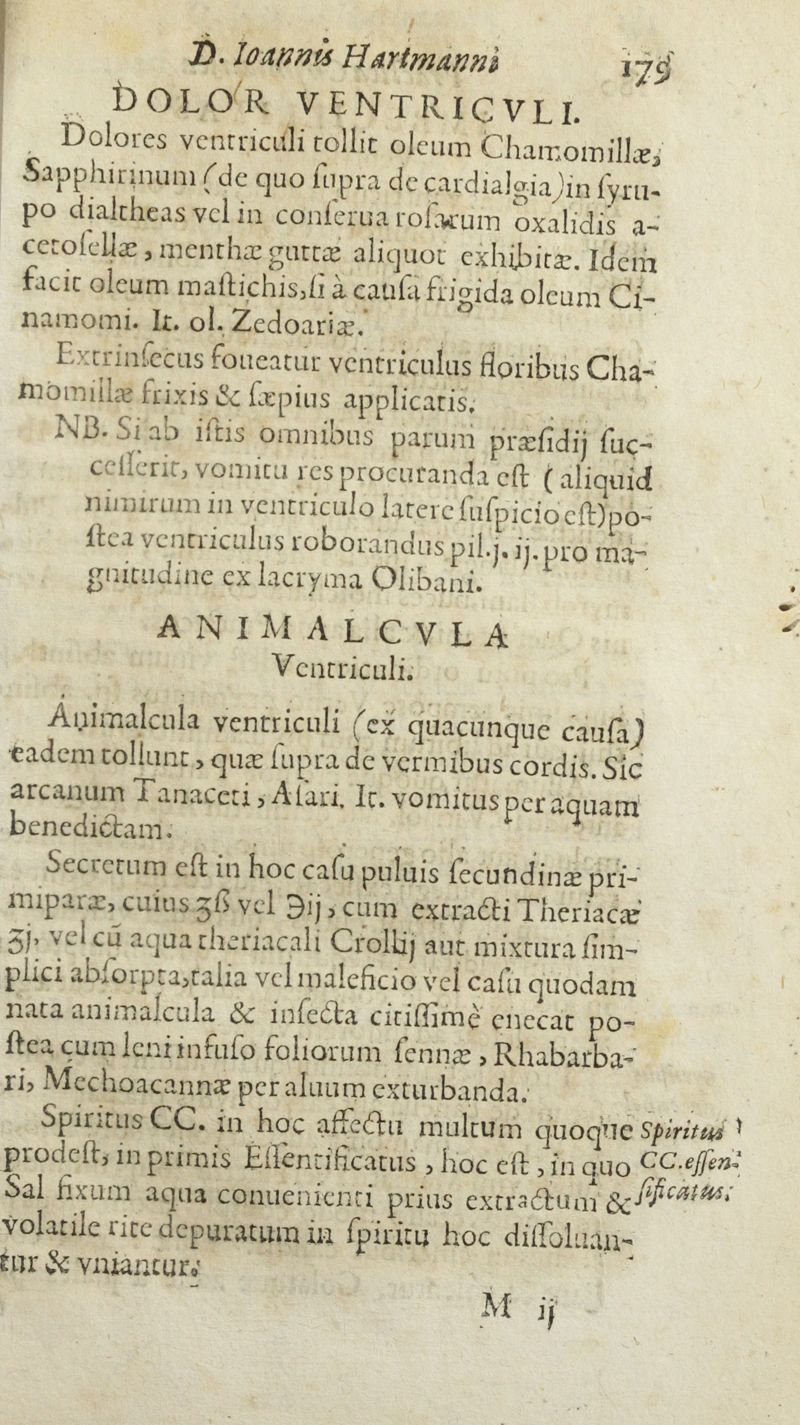 D. Ioannis Hartmanni 179
DOLOR VENTRICVLI.
Dolores ventriculi tollit oleum Chamomillæ,
Sapphirinum (de quo ſupra de cardialgia) in ſyru-
po dialtheas vel in conſerua roſarum oxalidis a-
cetoſellæ, menthæ guttæ aliquot exhibitæ. Idem
facit oleum maſtichis, ſi à cauſa frigida oleum Ci-
namomi. It. ol. Zedoariæ.
Extrinſecus foueatur ventriculus floribus Cha-
momillæ frixis & ſæpius applicatis.
NB. Si ab iſtis omnibus parum præſidij ſuc-
ceſſerit, vomitu res procuranda eſt (aliquid
nimirum in ventriculo latere ſuſpicio eſt) po-
ſtea ventriculus roborandus pil. j. ij. pro ma-
gnitudine ex lacryma Olibani.
ANIMALCVLA
Ventriculi.
Animalcula ventriculi (ex quacunque cauſa)
eadem tollunt, quæ ſupra de vermibus cordis. Sic
arcanum Tanaceti, Aſari. It. vomitus per aquam
benedictam.
Secretum eſt in hoc caſu puluis ſecundinæ pri-
miparæ, cuius ʒß vel ℈ij, cum extracti Theriacæ
ʒj, vel cū aqua theriacali Crollij aut mixtura ſim-
plici abſorpta, talia vel maleficio vel caſu quodam
nata animalcula & infecta citiſſimè enecat po-
ſtea cum leni infuſo foliorum ſennæ, Rhabarba-
ri, Mechoacannæ per aluum exturbanda.
Spiritus CC. in hoc affectu multum quoque
prodeſt, in primis Eſſentificatus, hoc eſt, in quo
Sal fixum aqua conuenienti prius extractum &
volatile rite depuratum in ſpiritu hoc diſſoluan-
tur & vniantur.
Spiritus
CC. eſſen-
tificatus.
M ij